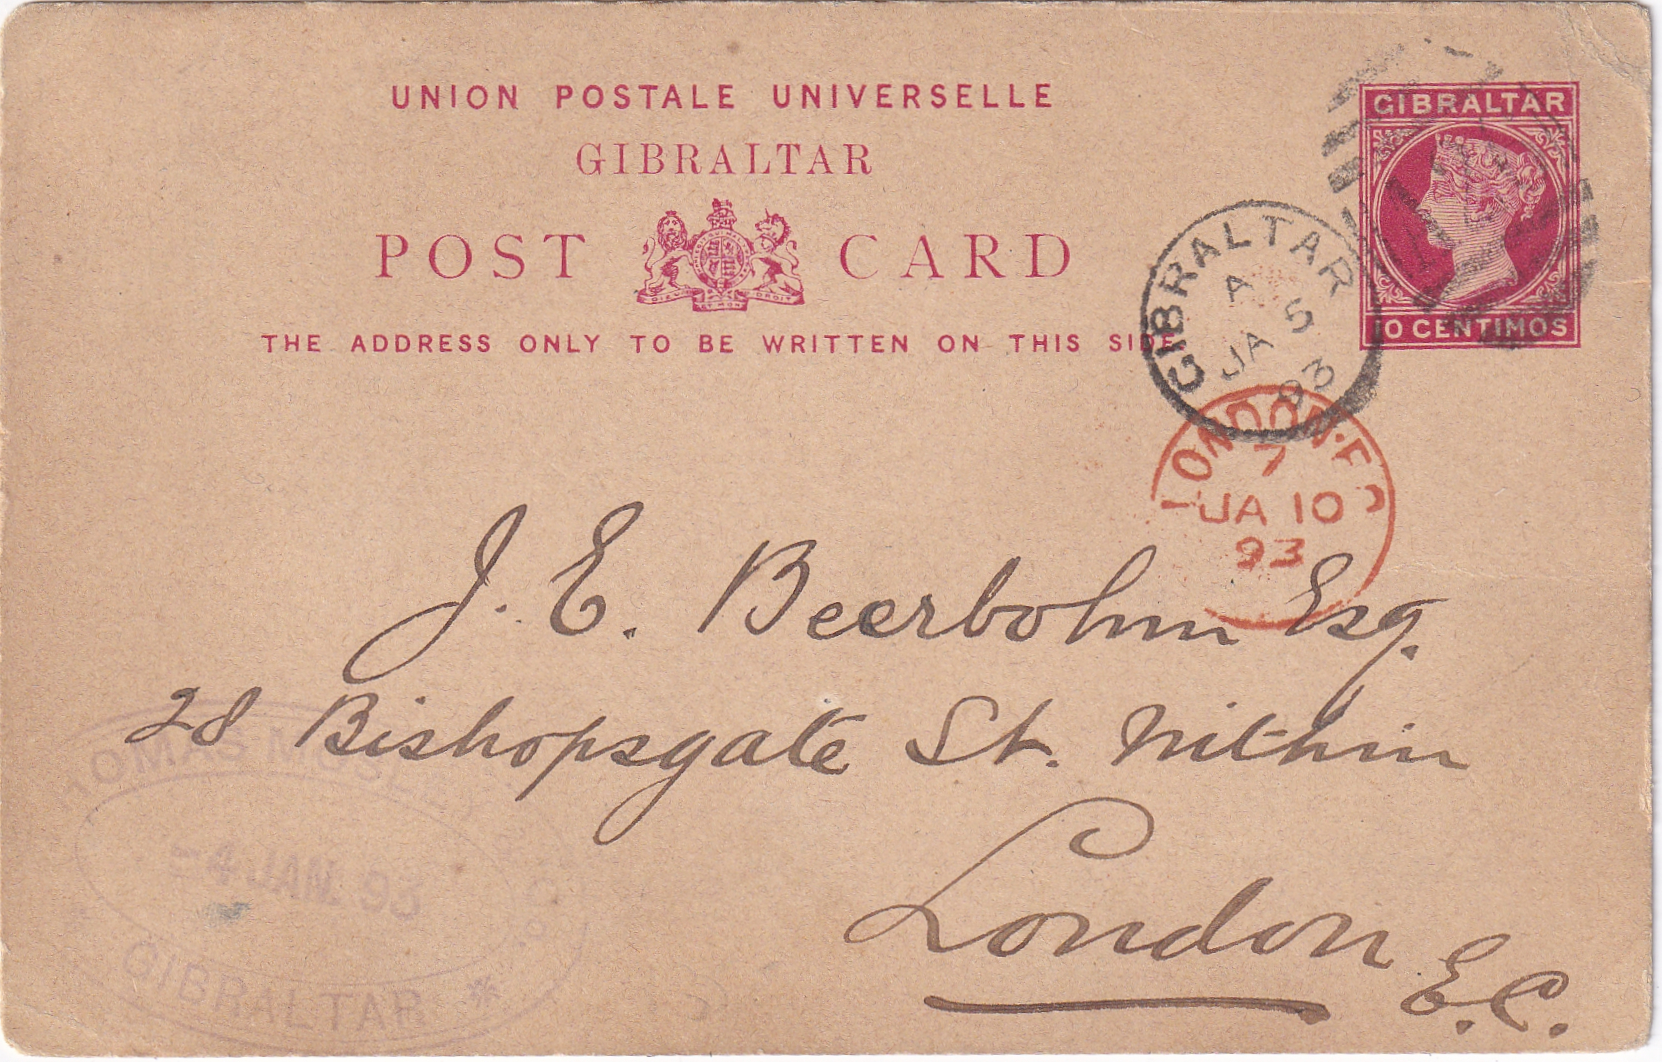 UNION POSTALE UNIVERSELLE
GIBRALTAR
POST CARD
DIEU ET MON DROIT
THE ADDRESS ONLY TO BE WRITTEN ON THIS SIDE
GIBRALTAR
10 CENTIMOS
GIBRALTAR
A
JA 5
93
LONDON·E C
7
JA 10
93
J. E. Beerbohm Esq.
28 Bishopsgate St. Within
London
E.C.
THOMAS MOSLEY & CO.
-4 JAN. 93
GIBRALTAR *